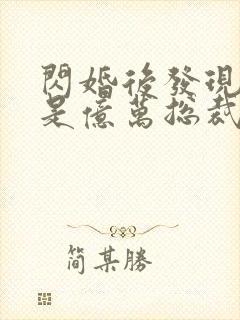 閃婚後發現
是億萬總裁
簡某勝